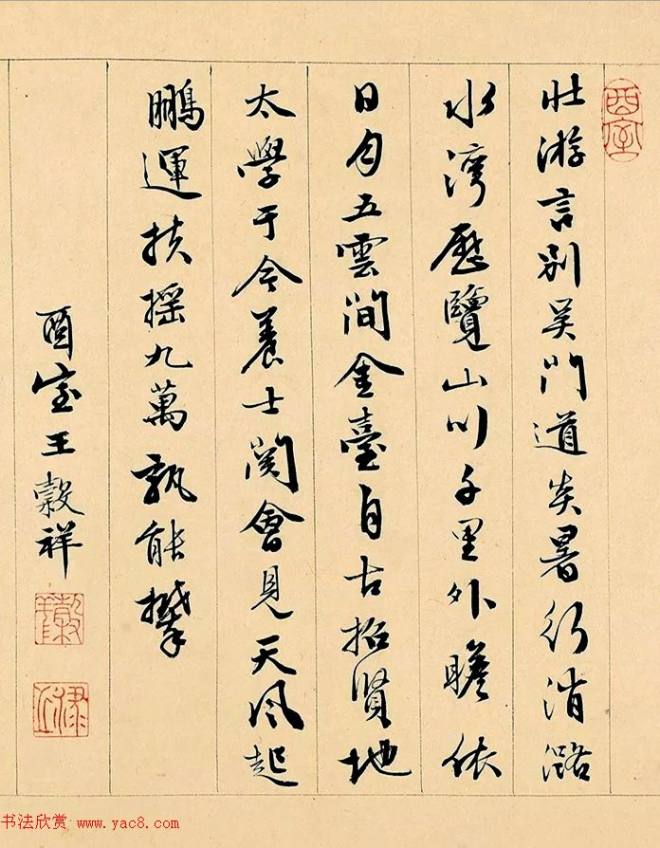 壮游言别吴门道炎暑行消潞
水湾歷覽山川千里外瞻依
日月五雲間金臺自古招賢地
太學于今養士関會見天風起
鵬運扶摇九萬孰能攀
酉室王穀祥
酉室
书法欣赏 www.yac8.com